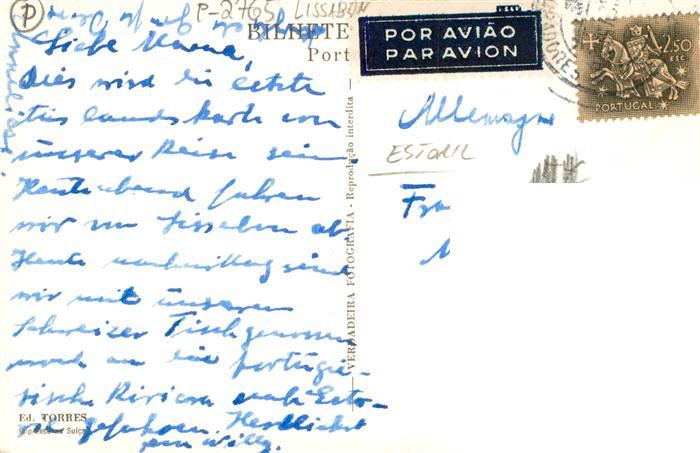 P-2765 LISSABON
BILHETE
Port
POR AVIÃO
PAR AVION
2.50
ESC.
PORTUGAL
Liebe Mama,
Dies wird die letzte
Auslandskarte von
unserer Reise sein.
Heute abend fahren
wir von Lissabon ab
Heute nachmittag sind
wir mit unseren
Schweizer Tischgenossen
noch an die portugie-
sische Riviera nach Esto-
ril gefahren. Herzlichst
Willy.
Allemagne
ESTORIL
Fra
VERDADEIRA FOTOGRAFIA - Reprodução interdita
Ed. TORRES
Impresso na Suíça